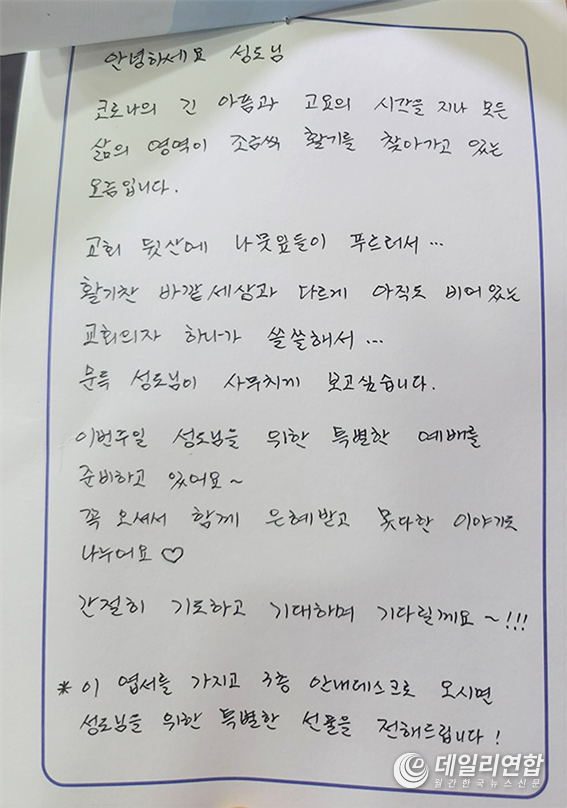 안녕하세요 성도님
코로나의 긴 아픔과 고요의 시간을 지나 모든
삶의 영역이 조금씩 활기를 찾아가고 있는
요즘입니다.
교회 뒷산에 나뭇잎들이 푸르러서...
활기찬 바깥세상과 다르게 아직도 비어있는
교회의자 하나가 쓸쓸해서...
문득 성도님이 사무치게 보고싶습니다.
이번주일 성도님을 위한 특별한 예배를
준비하고 있어요~
꼭 오셔서 함께 은혜받고 못다한 이야기도
나누어요♡
간절히 기도하고 기대하며 기다릴께요~!!!
* 이 엽서를 가지고 3층 안내데스크로 오시면
성도님을 위한 특별한 선물을 전해드립니다!
데일리연합
월간한국뉴스신문